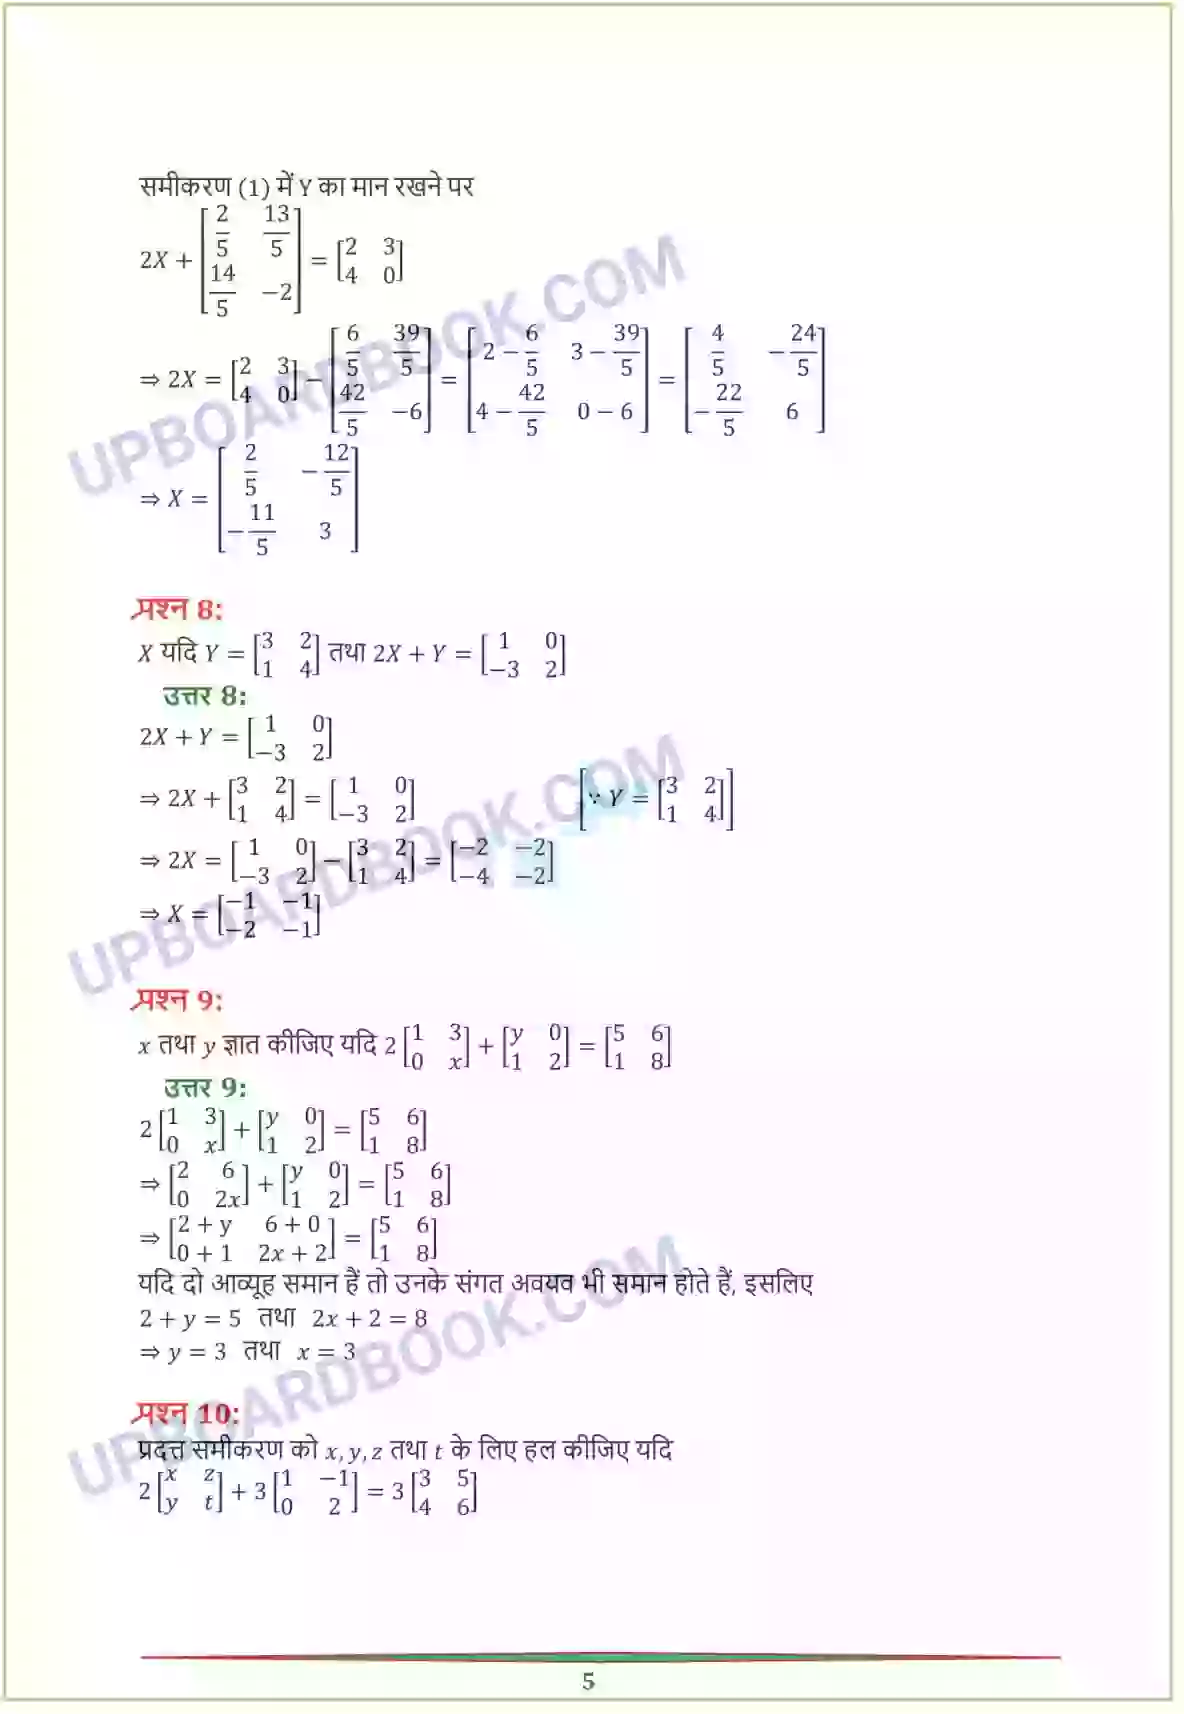 समीकरण (1) में Y का मान रखने पर
2X + [2/5 13/5; 14/5 −2] = [2 3; 4 0]
⇒ 2X = [2 3; 4 0] − [6/5 39/5; 42/5 −6] = [2 − 6/5 3 − 39/5; 4 − 42/5 0 − 6] = [4/5 −24/5; −22/5 6]
⇒ X = [2/5 −12/5; −11/5 3]
प्रश्न 8:
X यदि Y = [3 2; 1 4] तथा 2X + Y = [1 0; −3 2]
उत्तर 8:
2X + Y = [1 0; −3 2]
⇒ 2X + [3 2; 1 4] = [1 0; −3 2] [∵ Y = [3 2; 1 4]]
⇒ 2X = [1 0; −3 2] − [3 2; 1 4] = [−2 −2; −4 −2]
⇒ X = [−1 −1; −2 −1]
प्रश्न 9:
x तथा y ज्ञात कीजिए यदि 2 [1 3; 0 x] + [y 0; 1 2] = [5 6; 1 8]
उत्तर 9:
2 [1 3; 0 x] + [y 0; 1 2] = [5 6; 1 8]
⇒ [2 6; 0 2x] + [y 0; 1 2] = [5 6; 1 8]
⇒ [2 + y 6 + 0; 0 + 1 2x + 2] = [5 6; 1 8]
यदि दो आव्यूह समान हैं तो उनके संगत अवयव भी समान होते हैं, इसलिए
2 + y = 5 तथा 2x + 2 = 8
⇒ y = 3 तथा x = 3
प्रश्न 10:
प्रदत्त समीकरण को x, y, z तथा t के लिए हल कीजिए यदि
2 [x z; y t] + 3 [1 −1; 0 2] = 3 [3 5; 4 6]
5
UPBOARDBOOK.COM
UPBOARDBOOK.COM
UPBOARDBOOK.COM